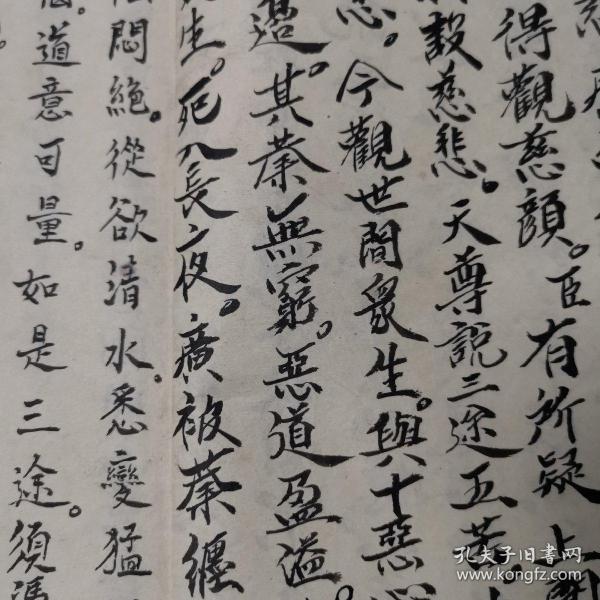 得觀慈顏。臣有所疑上
設慈悲。天尊說三途五苦。
今觀世間眾生。與十惡
其業無窮。惡道盈溢。
生。死入長夜。廣被業纏
悶絕。從欲清水。悉變猛
道意可量。如是三途。須馮
孔夫子旧书网
www.kongfz.com